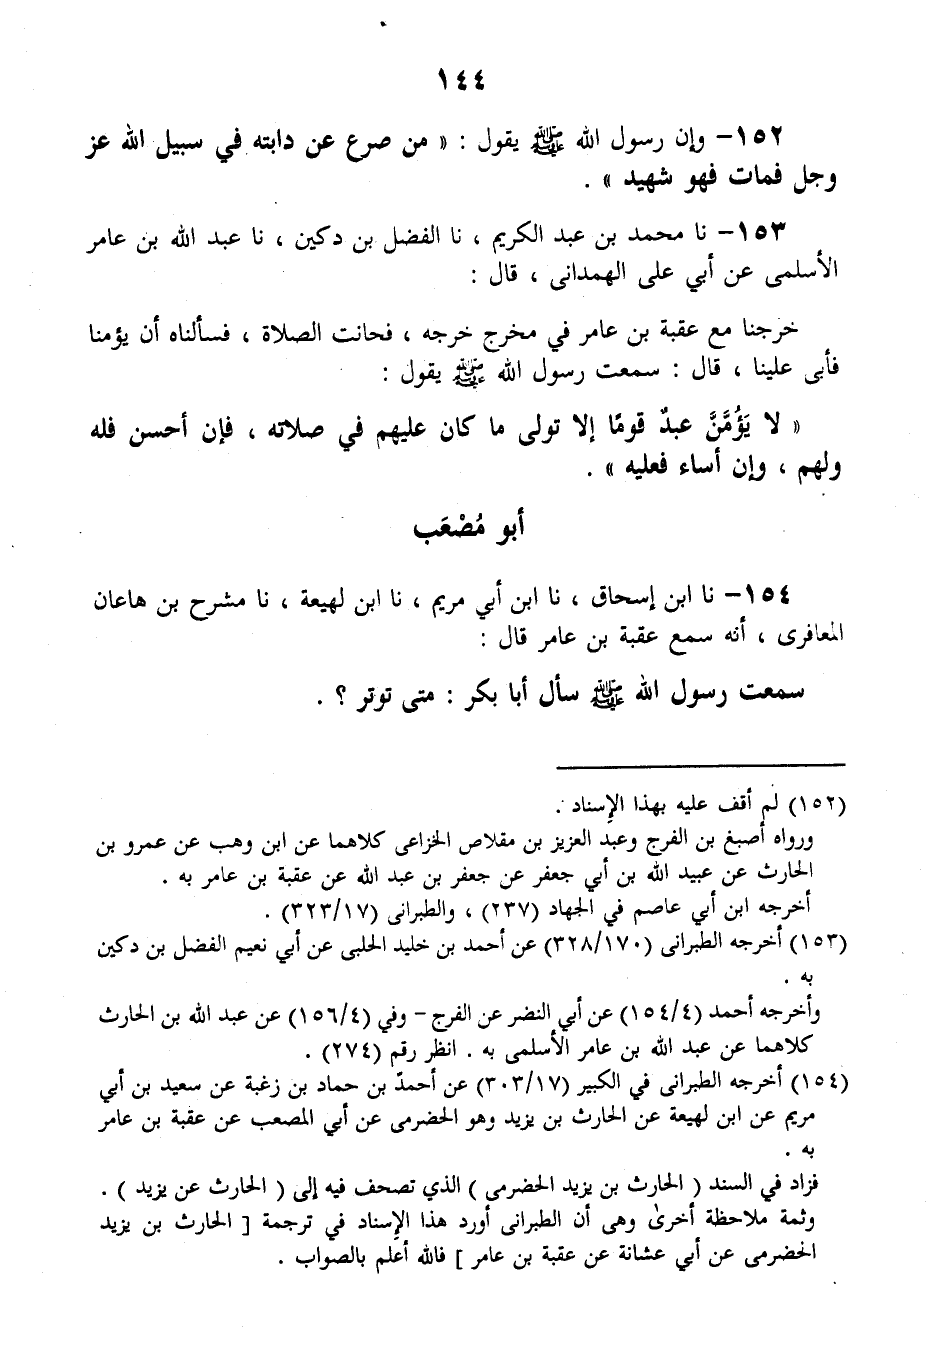 ١٤٤
١٥٢- وإن رسول الله ﷺ يقول : « من صرع عن دابته في سبيل الله عز
وجل فمات فهو شهيد » .
١٥٣- نا محمد بن عبد الكريم ، نا الفضل بن دكين ، نا عبد الله بن عامر
الأسلمى عن أبي على الهمدانى ، قال :
خرجنا مع عقبة بن عامر في مخرج خرجه ، فحانت الصلاة ، فسألناه أن يؤمنا
فأبى علينا ، قال : سمعت رسول الله ﷺ يقول :
« لا يَؤُمَّنَّ عبدٌ قومًا إلا تولى ما كان عليهم في صلاته ، فإن أحسن فله
ولهم ، وإن أساء فعليه » .
أبو مُصْعَب
١٥٤- نا ابن إسحاق ، نا ابن أبي مريم ، نا ابن لهيعة ، نا مشرح بن هاعان
المعافرى ، أنه سمع عقبة بن عامر قال :
سمعت رسول الله ﷺ سأل أبا بكر : متى توتر ؟ .
(١٥٢) لم أقف عليه بهذا الإسناد .
ورواه أصبغ بن الفرج وعبد العزيز بن مقلاص الخزاعى كلاهما عن ابن وهب عن عمرو بن
الحارث عن عبيد الله بن أبي جعفر عن جعفر بن عبد الله عن عقبة بن عامر به .
أخرجه ابن أبي عاصم في الجهاد (٢٣٧) ، والطبرانى (٣٢٣/١٧) .
(١٥٣) أخرجه الطبرانى (٣٢٨/١٧٠) عن أحمد بن خليد الحلبى عن أبي نعيم الفضل بن دكين
به .
وأخرجه أحمد (١٥٤/٤) عن أبي النضر عن الفرج - وفي (١٥٦/٤) عن عبد الله بن الحارث
كلاهما عن عبد الله بن عامر الأسلمى به . انظر رقم (٢٧٤) .
(١٥٤) أخرجه الطبرانى في الكبير (٣٠٣/١٧) عن أحمد بن حماد بن زغبة عن سعيد بن أبي
مريم عن ابن لهيعة عن الحارث بن يزيد وهو الحضرمى عن أبي المصعب عن عقبة بن عامر
به .
فزاد في السند ( الحارث بن يزيد الحضرمى ) الذي تصحف فيه إلى ( الحارث عن يزيد ) .
وثمة ملاحظة أخرىٰ وهى أن الطبرانى أورد هذا الإسناد في ترجمة [ الحارث بن يزيد
الحضرمى عن أبي عشانة عن عقبة بن عامر ] فالله أعلم بالصواب .